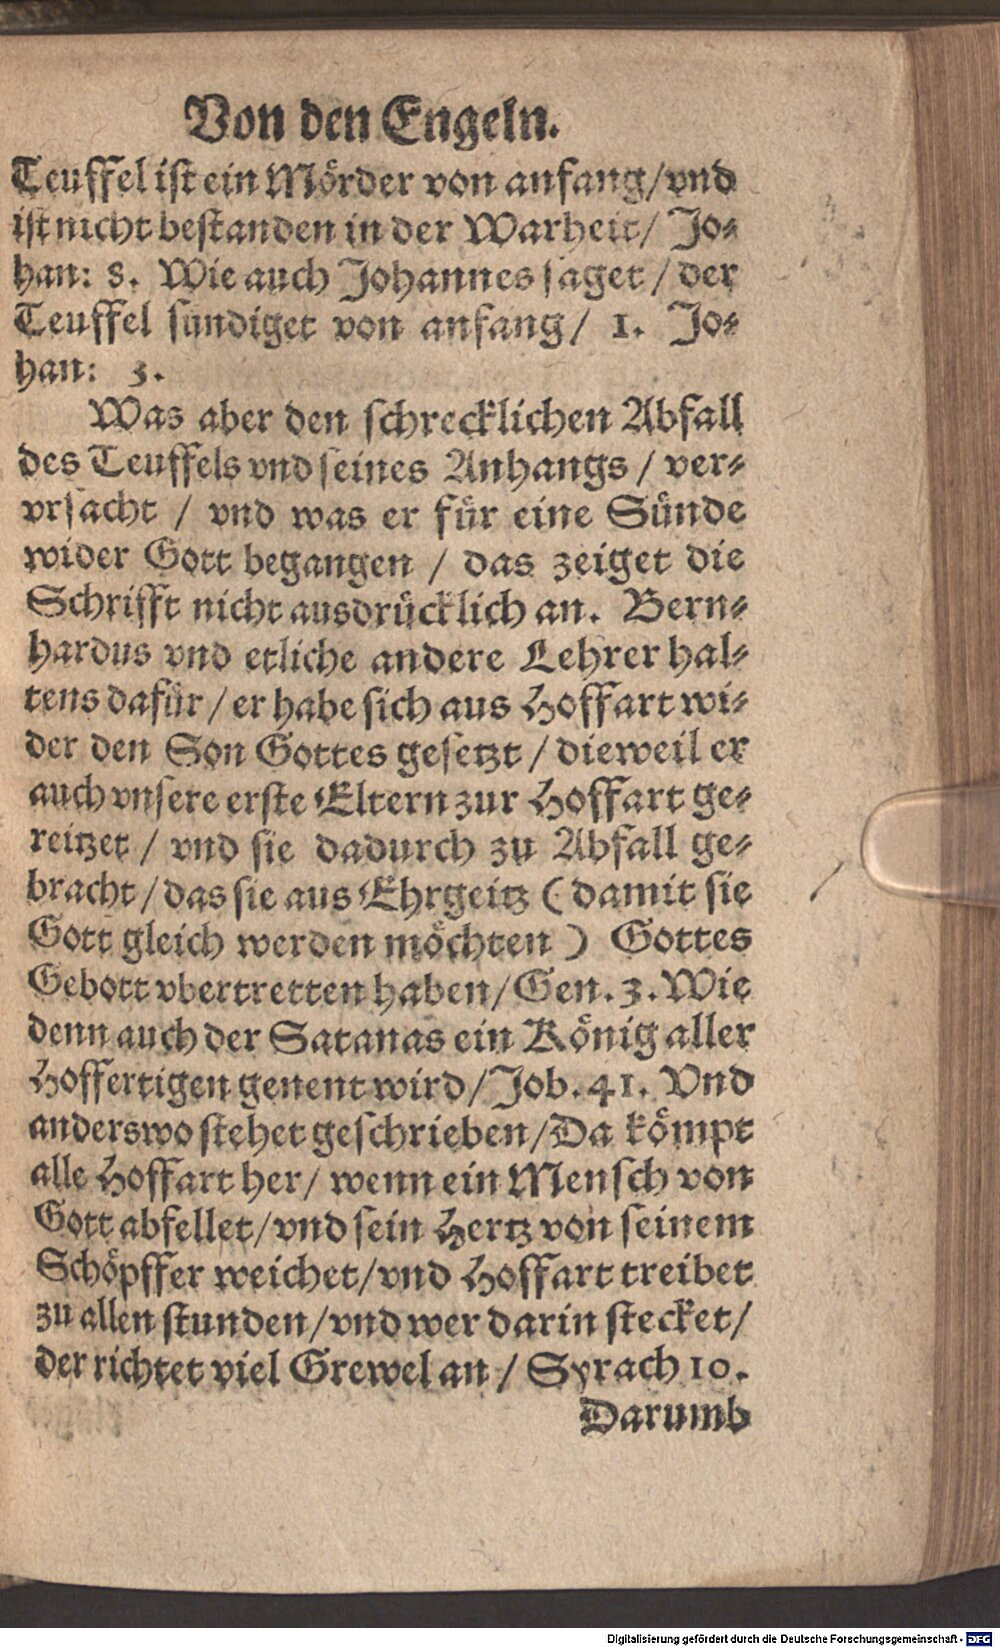 Von den Engeln.
Teuffel ist ein Mörder von anfang/vnd
ist nicht bestanden in der Warheit/ Jo-
han: 8. Wie auch Johannes saget/ der
Teuffel sündiget von anfang/ 1. Jo-
han: 3.
Was aber den schrecklichen Abfall
des Teuffels vnd seines Anhangs/ ver-
vrsacht / vnd was er für eine Sünde
wider Gott begangen / das zeiget die
Schrifft nicht ausdrücklich an. Bern-
hardus vnd etliche andere Lehrer hal-
tens dafür/ er habe sich aus Hoffart wi-
der den Son Gottes gesetzt/ dieweil er
auch vnsere erste Eltern zur Hoffart ge-
reitzet/ vnd sie dadurch zu Abfall ge-
bracht/das sie aus Ehrgeitz (damit sie
Gott gleich werden möchten) Gottes
Gebott vbertretten haben/Gen. 3. Wie
denn auch der Satanas ein König aller
Hoffertigen genent wird/Job. 41. Vnd
anderswo stehet geschrieben/Da kömpt
alle Hoffart her/ wenn ein Mensch von
Gott abfellet/vnd sein Hertz von seinem
Schöpffer weichet/vnd Hoffart treibet
zu allen stunden/vnd wer darin stecket/
der richtet viel Grewel an/ Syrach 10.
Darumb
Digitalisierung gefördert durch die Deutsche Forschungsgemeinschaft - DFG